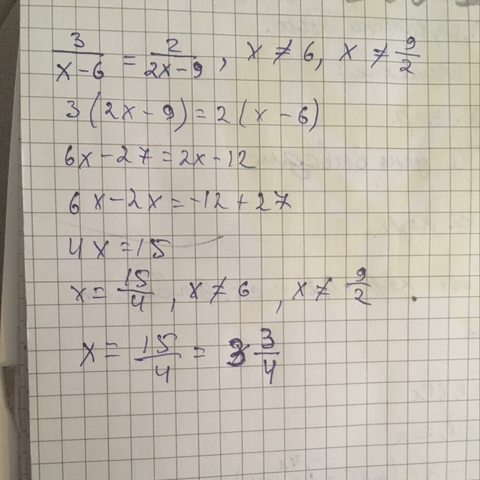 3/(x-6) = 2/(2x-9), x ≠ 6, x ≠ 9/2
3(2x-9)=2(x-6)
6x-27=2x-12
6x-2x=-12+27
4x=15
x=15/4, x≠6, x≠ 9/2.
x= 15/4 = 3 3/4